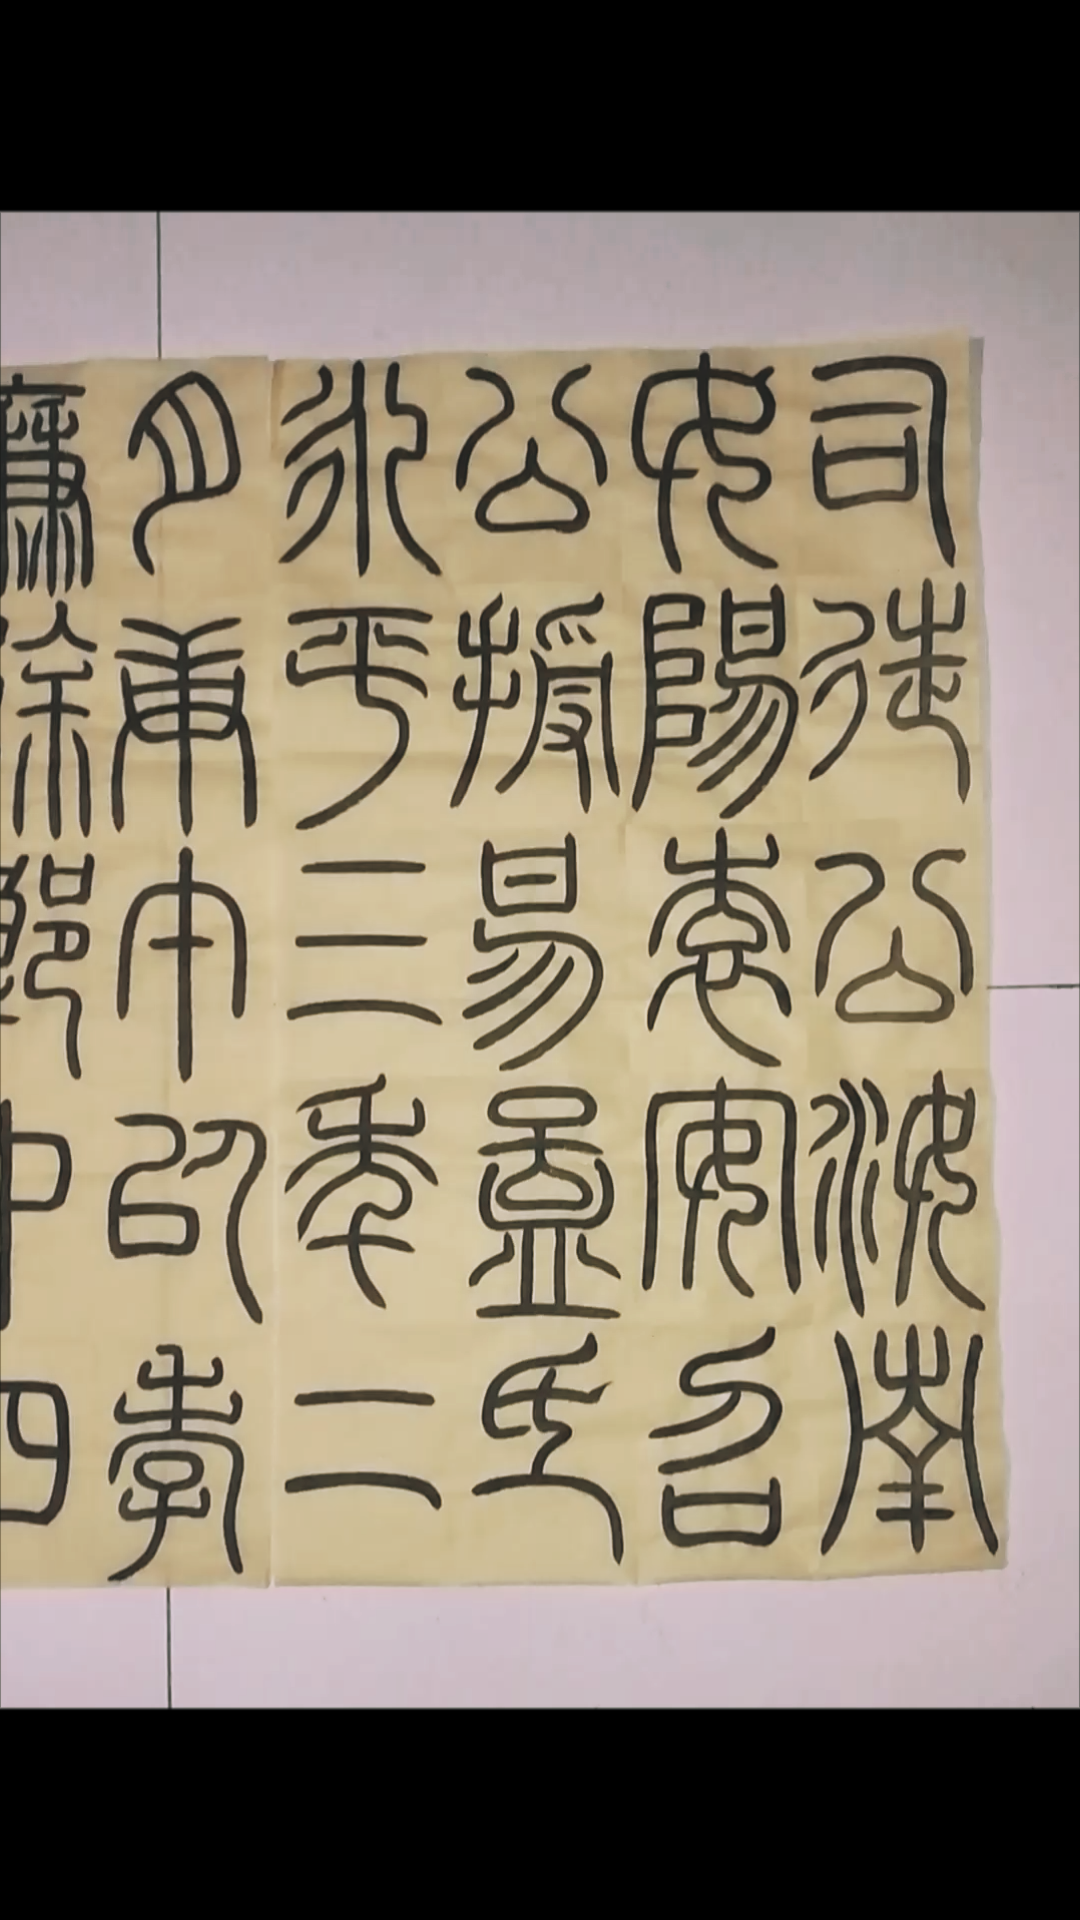 司徒公汝南
女陽袁安召
公授易孟氏
永平三年二
月庚午以孝
廉除郎中四